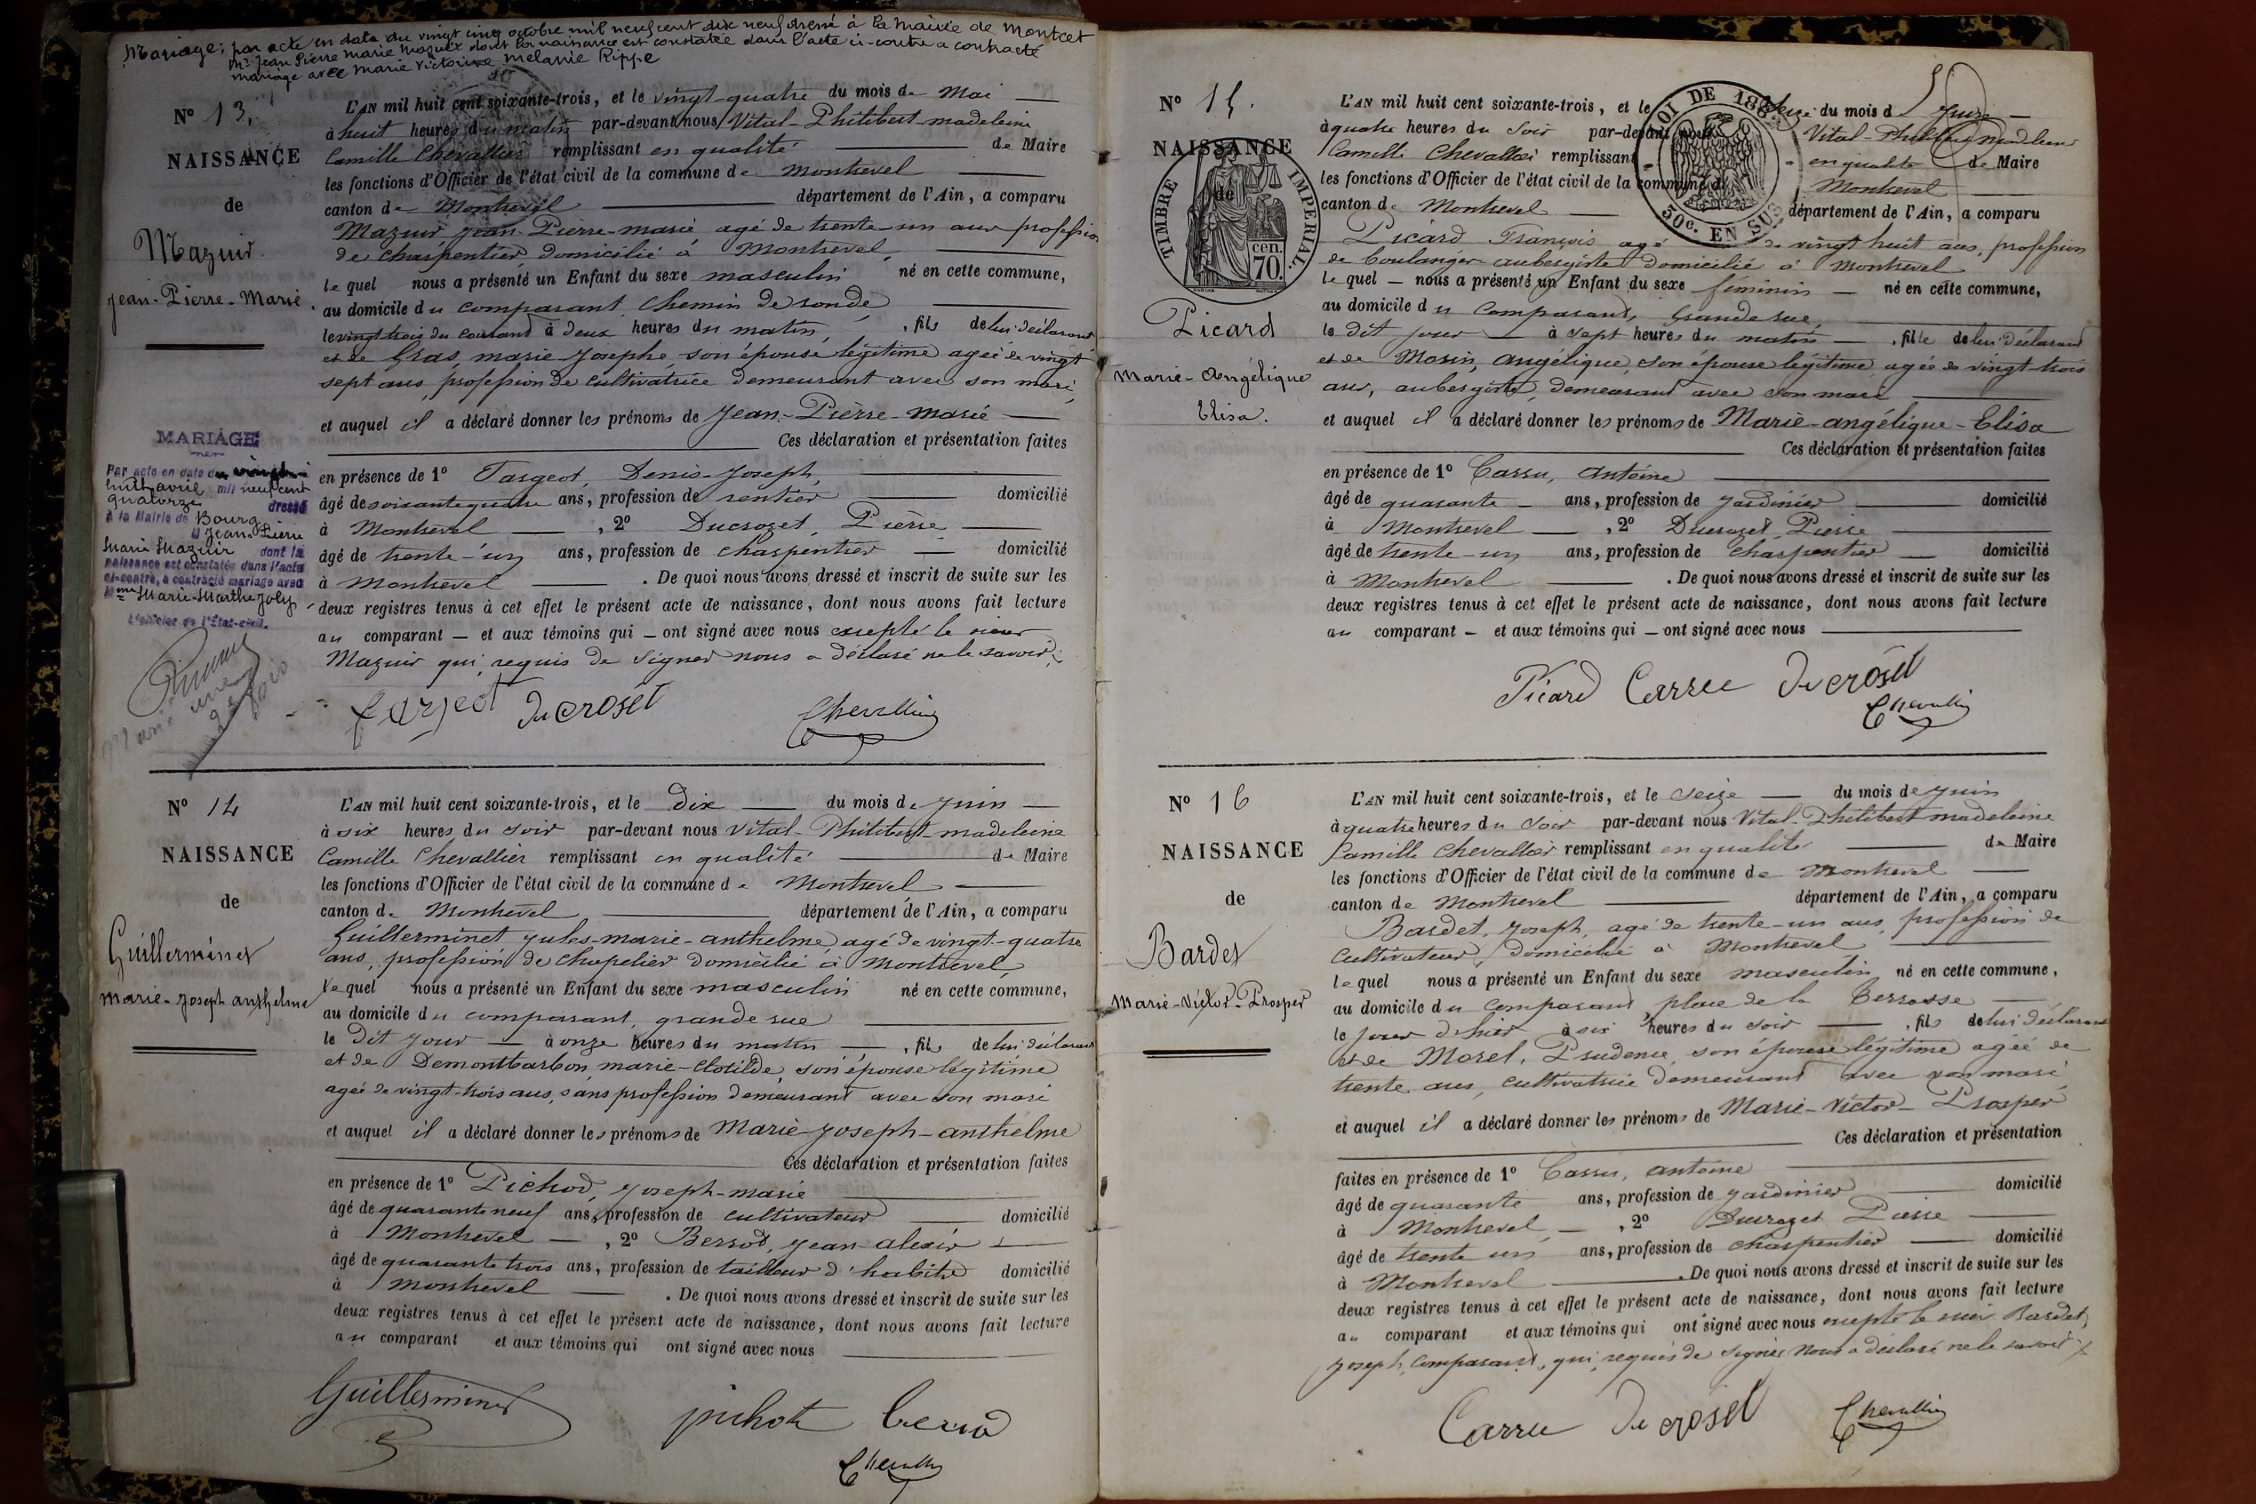 Mariage : par acte en date du vingt cinq octobre mil neuf cent dix neuf dressé à la Mairie de Montcet
Mr Jean Pierre Marie Mazuir dont la naissance est constatée dans l'acte ci-contre a contracté
mariage avec Marie Victoire Mélanie Rippe
No 13.
NAISSANCE
de
Mazuir
Jean-Pierre-Marie.
MARIAGE
Par acte en date du vingt
huit avril mil neuf cent
quatorze dressé
à la Mairie de Bourg
M Jean Pierre
Marie Mazuir dont la
naissance est constatée dans l'acte
ci-contre, a contracté mariage avec
Mme Marie-Marthe Joly
L'officier de l'État-civil.
L'AN mil huit cent soixante-trois, et le vingt-quatre du mois de Mai
à huit heures du matin par-devant nous Vital-Philibert-madeleine
Camille Chevallier remplissant en qualité de Maire
les fonctions d'Officier de l'état civil de la commune de Montrevel
canton de Montrevel département de l'Ain, a comparu
Mazuir Jean-Pierre-marie agé de trente-un ans profession
de charpentier domicilié à Montrevel,
lequel nous a présenté un Enfant du sexe masculin né en cette commune,
au domicile du comparant, chemin de ronde,
le vingt trois du courant à deux heures du matin, fils de lui déclarant
et de Gras, marie-Josephe, son épouse légitime agée de vingt
sept ans, profession de cultivatrice demeurant avec son mari,
et auquel il a déclaré donner les prénoms de Jean-Pierre-Marie
Ces déclaration et présentation faites
en présence de 1o Fargeot, Denis-Joseph,
âgé de soixante quatre ans, profession de rentier domicilié
à Montrevel, 2o Ducrozet, Pierre
âgé de trente-un ans, profession de charpentier domicilié
à Montrevel. De quoi nous avons dressé et inscrit de suite sur les
deux registres tenus à cet effet le présent acte de naissance, dont nous avons fait lecture
au comparant et aux témoins qui ont signé avec nous excepté le sieur
Mazuir qui, requis de signer nous a déclaré ne le savoir.
fargeot Ducroset Chevallier
No 14
NAISSANCE
de
Guillerminet
marie-Joseph anthelme
L'AN mil huit cent soixante-trois, et le dix du mois de Juin
à six heures du soir par-devant nous Vital-Philibert-madeleine
Camille Chevallier remplissant en qualité de Maire
les fonctions d'Officier de l'état civil de la commune de Montrevel
canton de Montrevel département de l'Ain, a comparu
Guillerminet Jules-marie-anthelme, agé de vingt-quatre
ans, profession de chapelier domicilié à Montrevel,
lequel nous a présenté un Enfant du sexe masculin né en cette commune,
au domicile du comparant, grande rue
le Dit Jour à onze heures du matin, fils de lui déclarant
et de Demontbarbon, marie-clotilde, son épouse légitime
agée de vingt-trois ans, sans profession demeurant avec son mari
et auquel il a déclaré donner les prénoms de Marie-Joseph-anthelme
Ces déclaration et présentation faites
en présence de 1o Pichod, Joseph-marie
âgé de quarante neuf ans, profession de cultivateur domicilié
à Montrevel, 2o Berrod, Jean-alexis
âgé de quarante trois ans, profession de tailleur d'habits domicilié
à Montrevel. De quoi nous avons dressé et inscrit de suite sur les
deux registres tenus à cet effet le présent acte de naissance, dont nous avons fait lecture
au comparant et aux témoins qui ont signé avec nous
Guillerminet pichot berrod
Chevallier
No 15.
NAISSANCE
de
TIMBRE IMPERIAL.
cen.
70.
Picard
Marie-Angélique
Elisa.
LOI DE 18
50c. EN SUS
L'AN mil huit cent soixante-trois, et le seize du mois de Juin
à quatre heures du soir par-devant nous Vital-Philibert madeleine
Camille Chevallier remplissant en qualité de Maire
les fonctions d'Officier de l'état civil de la commune de Montrevel
canton de Montrevel département de l'Ain, a comparu
Picard François agé de vingt huit ans, profession
de boulanger-aubergiste domicilié à Montrevel
lequel nous a présenté un Enfant du sexe feminin né en cette commune,
au domicile du comparant, Grande rue,
le dit jour à sept heures du matin, fille de lui déclarant
et de Morin, angélique, son épouse légitime agée de vingt-trois
ans, aubergiste, demeurant avec son mari
et auquel il a déclaré donner les prénoms de Marie-angélique-Elisa
Ces déclaration et présentation faites
en présence de 1o Carru, antoine
âgé de quarante ans, profession de jardinier domicilié
à Montrevel, 2o Ducrozet Pierre
âgé de trente-un ans, profession de charpentier domicilié
à Montrevel. De quoi nous avons dressé et inscrit de suite sur les
deux registres tenus à cet effet le présent acte de naissance, dont nous avons fait lecture
au comparant et aux témoins qui ont signé avec nous
Picard Carru Ducroset
Chevallier
No 16
NAISSANCE
de
Bardet
Marie-Victor-Prosper
L'AN mil huit cent soixante-trois, et le seize du mois de Juin
à quatre heures du soir par-devant nous Vital-Philibert madeleine
Camille Chevallier remplissant en qualité de Maire
les fonctions d'Officier de l'état civil de la commune de Montrevel
canton de Montrevel département de l'Ain, a comparu
Bardet, Joseph, agé de trente-un ans, profession de
cultivateur, domicilié à Montrevel
lequel nous a présenté un Enfant du sexe masculin né en cette commune,
au domicile du comparant, place de la Terrasse
le jour d'hier à six heures du soir, fils de lui déclarant
et de Morel, Prudence, son épouse légitime agée de
trente ans, cultivatrice demeurant avec son mari,
et auquel il a déclaré donner les prénoms de Marie-Victor-Prosper
Ces déclaration et présentation
faites en présence de 1o Carru, antoine
âgé de quarante ans, profession de jardinier domicilié
à Montrevel, 2o Ducrozet Pierre
âgé de trente un ans, profession de charpentier domicilié
à Montrevel. De quoi nous avons dressé et inscrit de suite sur les
deux registres tenus à cet effet le présent acte de naissance, dont nous avons fait lecture
au comparant et aux témoins qui ont signé avec nous excepté le sieur Bardet,
Joseph, comparant, qui, requis de signer nous a déclaré ne le savoir
Carru Ducroset Chevallier